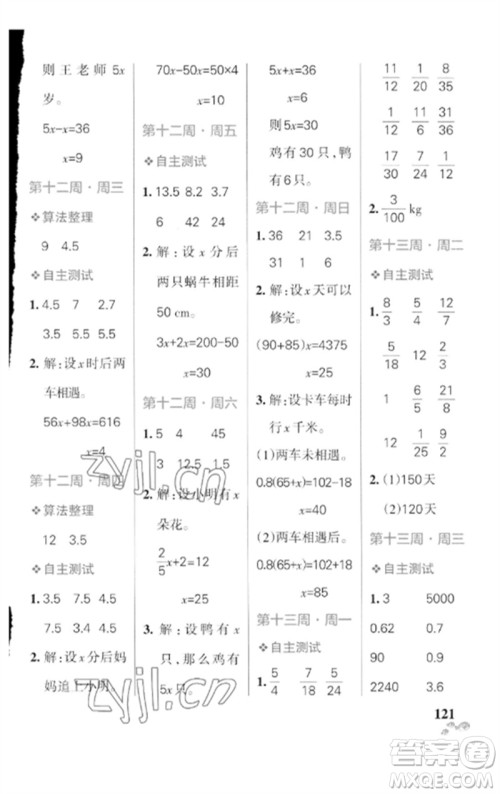 则王老师5x
岁。
5x-x=36
x=9
第十二周·周三
算法整理
9 4.5
自主测试
1. 4.5 7 2.7
3.5 5.5 5.5
2. 解:设x时后两
车相遇。
56x+98x=616
x=4
第十二周·周四
算法整理
12 3.5
自主测试
1. 3.5 7.5 4.5
7.5 3.4 5.5
2. 解:设x分后妈
妈追上小明。
70x-50x=50×4
x=10
第十二周·周五
自主测试
1. 13.5 8.2 3.7
6 42 24
2. 解:设x分后
两只蜗牛相距
50 cm。
3x+2x=200-50
x=30
第十二周·周六
1. 5 4 45
3 12.5 1.5
2. 解:设小明有x
朵花。
2/5x+2=12
x=25
3. 解:设鸭有x
只,那么鸡有
5x只。
5x+x=36
x=6
则5x=30
鸡有30只,鸭
有6只。
第十二周·周日
1. 36 21 3.5
31 1 6
2. 解:设x天可以
修完。
(90+85)x=4375
x=25
3. 解:设卡车每时
行x千米。
(1)两车未相遇。
0.8(65+x)=102-18
x=40
(2)两车相遇后。
0.8(65+x)=102+18
x=85
第十三周·周一
自主测试
1. 5/4 7/18 5/24 5/7
11/12 1/12 8/35
1/6 1/11 6/31
17/30 7/24 1/7
2. 3/100 kg
第十三周·周二
自主测试
1. 8/3 5/4 1/12
5/18 12 0
1 5/6 6/49
1/4 1 21/2
2. (1)150天
(2)120天
第十三周·周三
自主测试
1. 3 5000
0.62 0.7
90 0.9
2240 3.6
121
zyjl.cn
zyjl.cn
答案圈
MXQE.COM